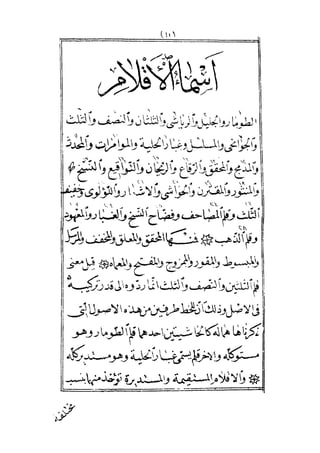 أسماء الأقلام
الطومار والجليل والرياشي والثلثان والنصف والثلث
والجوانحي والمسلسل وغبار الحلية والموامرات والمحدث
والمدمج والمحقق والرقاع والريحان والتواقيع والنسخ
والمنثور والمقترن والحواشي والاشعار واللولوى وخفيف
الثلث وقلم المصاحف وفضاح النسخ والغبار والعهود
وقلم الذهب فمنها المحقق والمعلق والمخفف والمرسل
والمبسوط والمقور والممزوج والمفتح والمعماه قيل معنى
قلم الثلثين والنصف والثلث انما ردوه الى قدر تركيبه
في الاصل وذلك ان للخط طرفين من هذه الاصول التي
ذكرناها هما له كالحاشيتين احدهما قلم الطومار وهو
مستو كله والاخر قلم يسمى غبار الحلية وهو مستدير كله
والاقلام المستقيمة والمستديرة تؤخذ منها بنسب
مختلفة